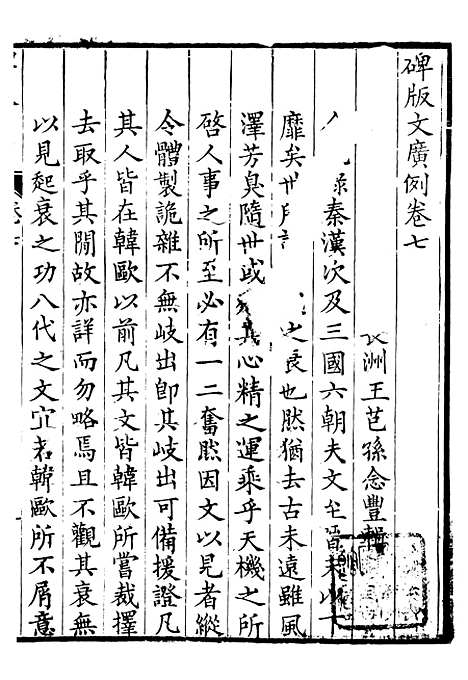 碑版文廣例卷七
長洲王芑孫念豐輯
秦漢次及三國六朝夫文至晉
靡矣世 之良也然猶去古未遠雖風
澤芳臭隨世或 其心精之運乘乎天機之所
啓人事之所至必有一二奮然因文以見者縱
令體製詭雜不無岐出卽其岐出可備援證凡
其人皆在韓歐以前凡其文皆韓歐所嘗裁擇
去取乎其閒故亦詳而勿略焉且不觀其衰無
以見起衰之功八代之文宜若韓歐所不屑意